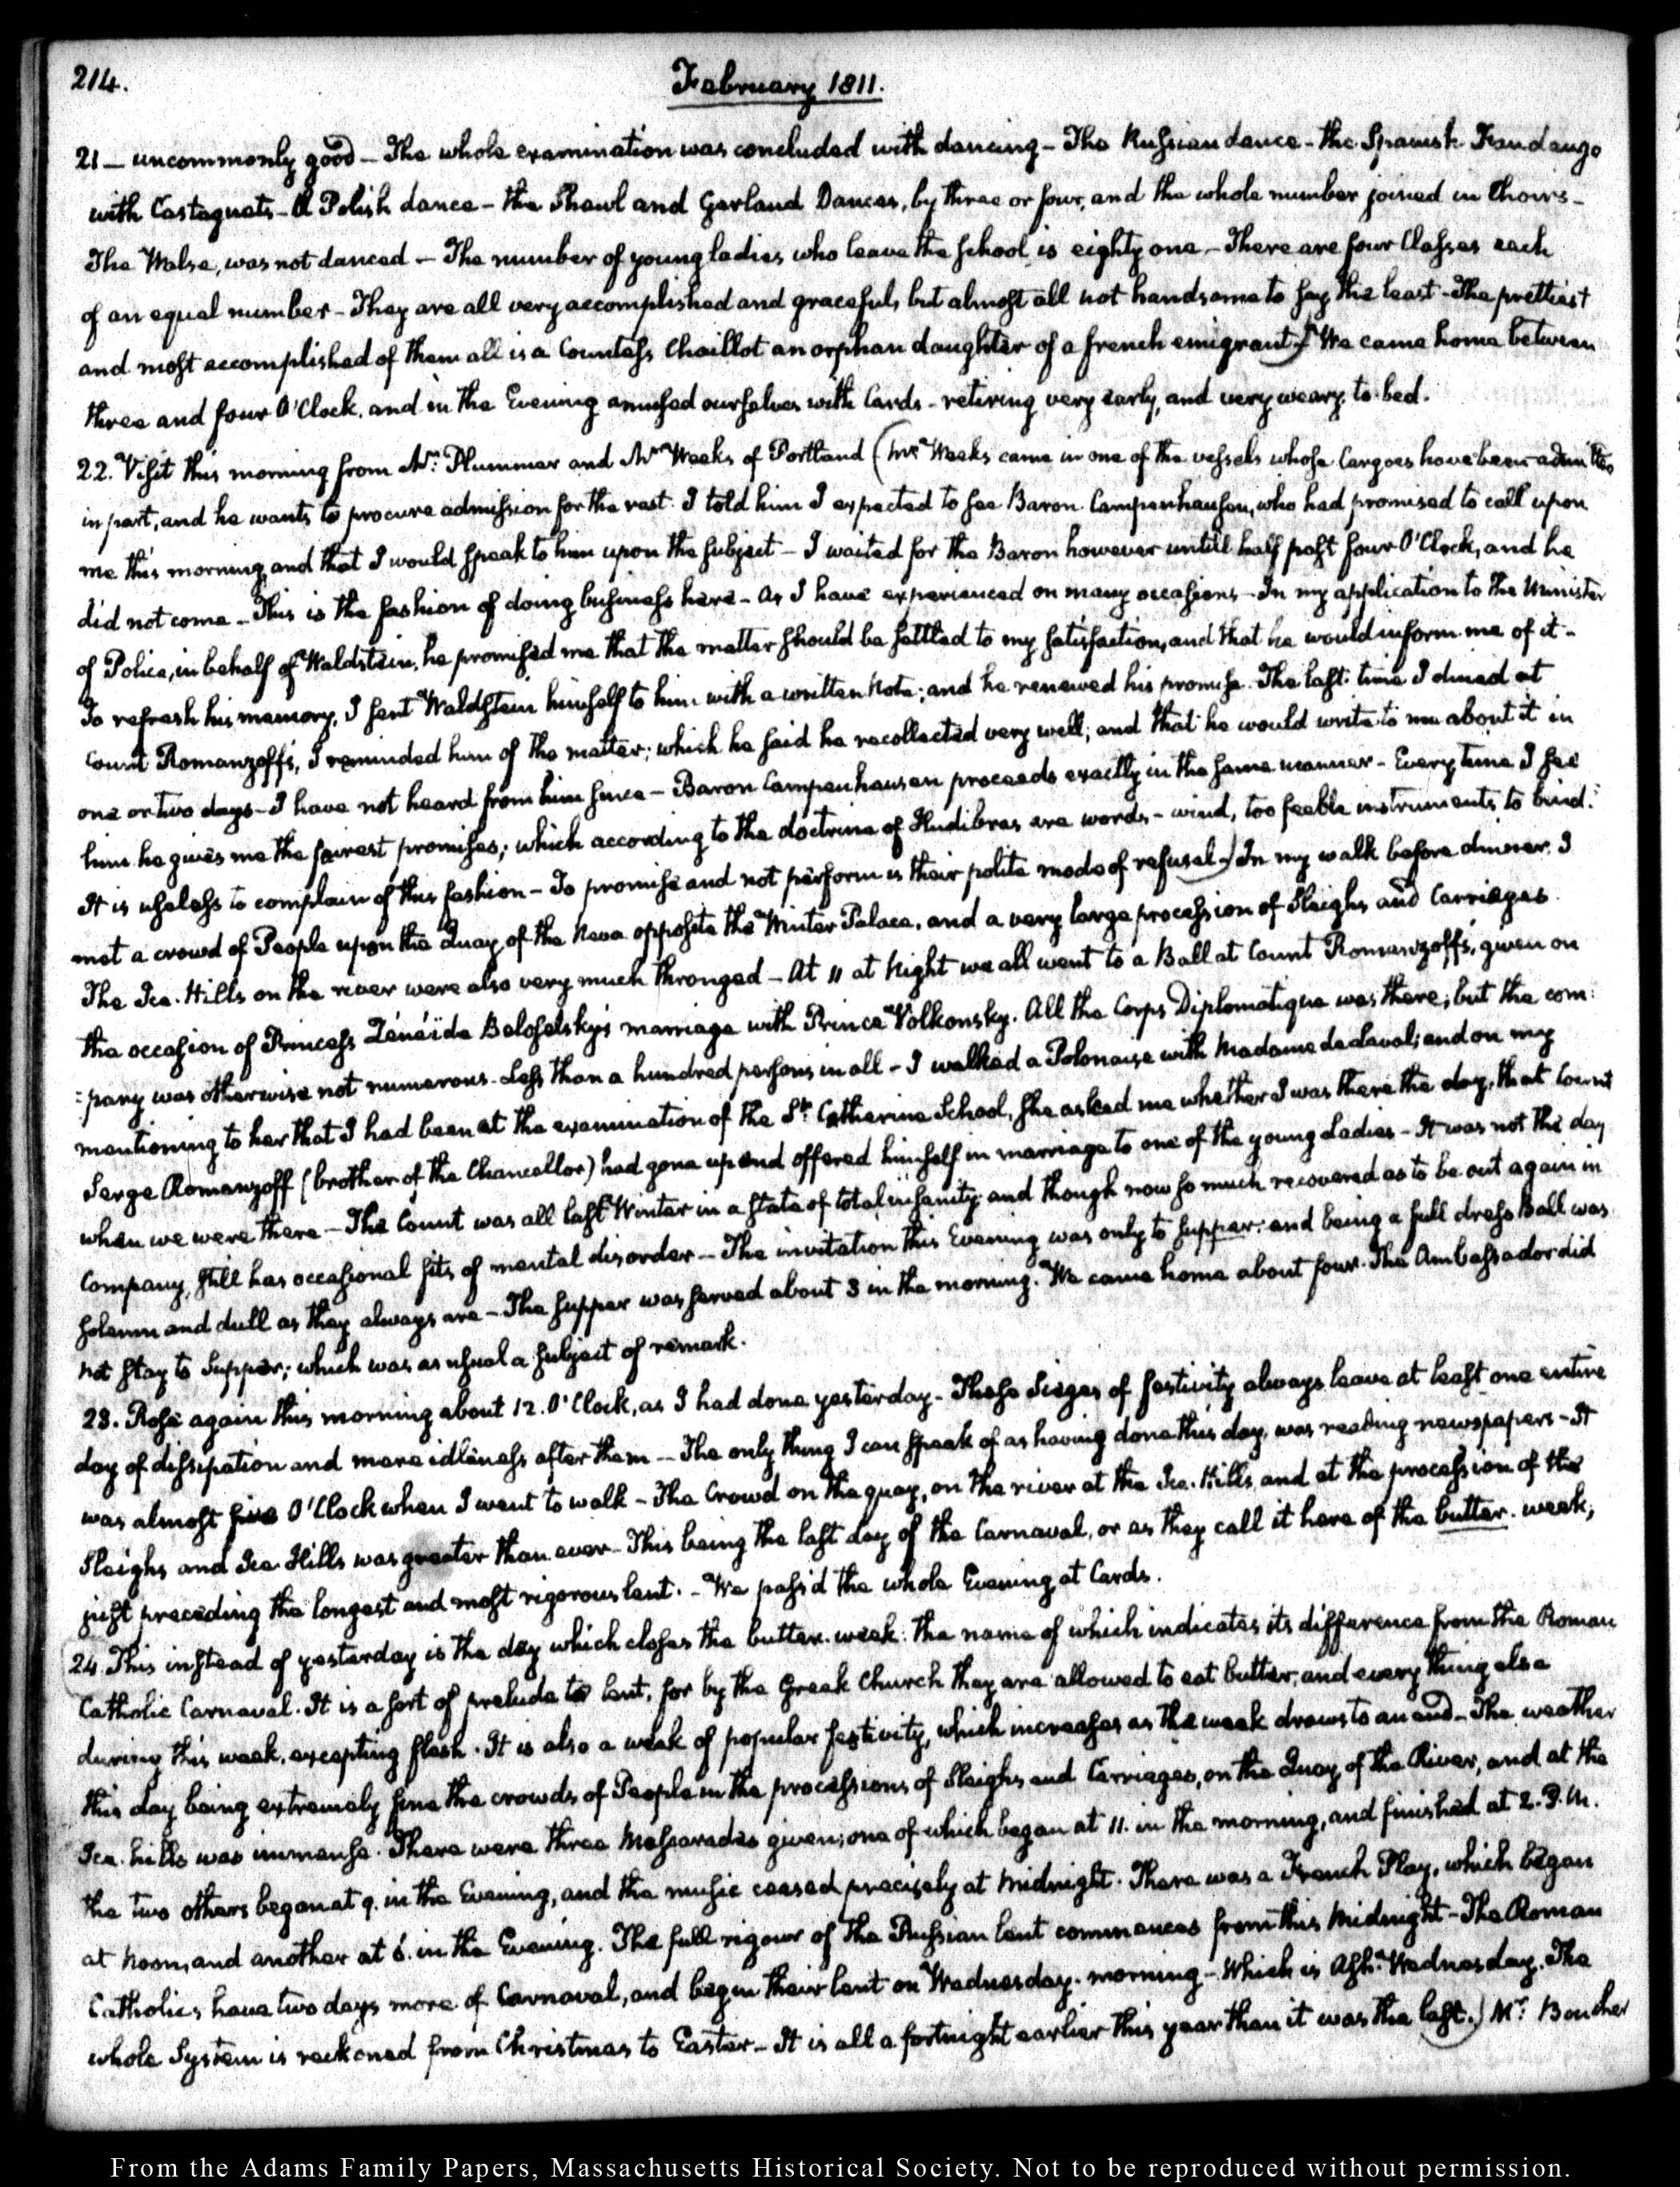 214.
February 1811.
21 — uncommonly good – The whole examination was concluded with dancing – The Russian dance – the Spanish Fandango
with Castagnets – A Polish dance – the Shawl and Garland Dances, by three or four, and the whole number joined in Choirs –
The Walse, was not danced – The number of young ladies who leave the school is eighty one – There are four Classes each
of an equal number – They are all very accomplished and graceful, but almost all not handsome to say the least – The prettiest
and most accomplished of them all is a Countess Choillot an orphan daughter of a french emigrant.) We came home between
three and four O'Clock, and in the Evening amused ourselves with Cards – retiring very early, and very weary to bed.
22. Visit this morning from Mr. Plummer and Mr. Weeks of Portland (Mr. Weeks came in one of the vessels whose Cargoes have been admitted
in part, and he wants to procure admission for the rest. I told him I expected to see Baron Campenhausen, who had promised to call upon
me this morning, and that I would speak to him upon the subject – I waited for the Baron however untill half past four O'Clock, and he
did not come – This is the fashion of doing business here – as I have experienced on many occasions – In my application to the Minister
of Police, in behalf of Waldstein, he promised me that the matter should be settled to my satisfaction, and that he would inform me of it –
To refresh his memory, I sent Waldstein himself to him with a written Note; and he renewed his promise. The last time I dined at
Count Romanzoff's, I reminded him of the matter; which he said he recollected very well; and that he would write to me about it in
one or two days – I have not heard from him since – Baron Campenhausen proceeds exactly in the same manner – Every time I see
him he gives me the fairest promises; which according to the doctrine of Hudibras are words – wind, too feeble instruments to bind.
It is useless to complain of this fashion – To promise and not perform is their polite mode of refusal.) In my walk before dinner I
met a crowd of People upon the Quay of the Neva opposite the Winter Palace, and a very large procession of Sleighs and Carriages.
The Ice-Hills on the river were also very much thronged – At 11 at Night we all went to a Ball at Count Romanzoff's, given on
the occasion of Princess Zénéïde Beloselsky's marriage with Prince Volkonsky. All the Corps Diplomatique was there; but the com:
:pany was otherwise not numerous – Less than a hundred persons in all – I walked a Polonaise with Madame de Laval; and on my
mentioning to her that I had been at the examination of the St. Catherine School, she asked me whether I was there the day, that Count
Serge Romanzoff (brother of the Chancellor) had gone up and offered himself in marriage to one of the young Ladies – It was not the day
when we were there – The Count was all last Winter in a state of total insanity, and though now so much recovered as to be out again in
Company, still has occasional fits of mental disorder – The invitation this Evening was only to supper: and being a full dress Ball was
solemn and dull as they always are – The supper was served about 3 in the morning. We came home about four. The Ambassador did
not stay to Supper; which was as usual a subject of remark.
23. Rose again this morning about 12. O'Clock, as I had done yesterday – These Sieges of festivity always leave at least one entire
day of dissipation and mere idleness after them – The only thing I can speak of as having done this day, was reading newspapers – It
was almost five O'Clock when I went to walk – The Crowd on the quay, on the river at the Ice-Hills, and at the procession of the
Sleighs and Ice Hills was greater than ever – This being the last day of the Carnaval, or as they call it here of the butter-week;
just preceding the longest and most rigorous lent. – We pass'd the whole Evening at Cards.
24. This instead of yesterday is the day which closes the butter-week: the name of which indicates its difference from the Roman
Catholic Carnaval. It is a sort of prelude to lent, for by the Greek Church they are allowed to eat butter, and every thing else
during this week, excepting flesh. It is also a week of popular festivity, which increases as the week draws to an end – The weather
this day being extremely fine the crowds of People in the processions of Sleighs and Carriages, on the Quay of the River, and at the
Ice-hills was immense. There were three Mascarades given; one of which began at 11. in the morning, and finished at 2. P.M.
the two others began at 9. in the Evening, and the music ceased precisely at Midnight. There was a French Play, which began
at Noon, and another at 6. in the Evening. The full rigour of the Russian lent commences from this Midnight – The Roman
Catholics have two days more of Carnaval, and begin their lent on Wednesday morning – Which is Ash-Wednesday. The
whole System is reckoned from Christmas to Easter – It is all a fortnight earlier this year than it was the last.) Mr. Boucher
From the Adams Family Papers, Massachusetts Historical Society. Not to be reproduced without permission.